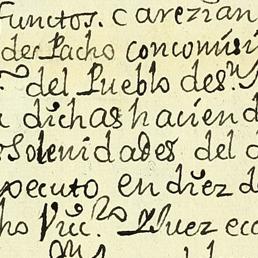 functos. carezian
derecho concomisi
del Pueblo des.n
dichas haciend
Solenidades del d
xecuto en diez d
ho Vic.rio Juez ecc